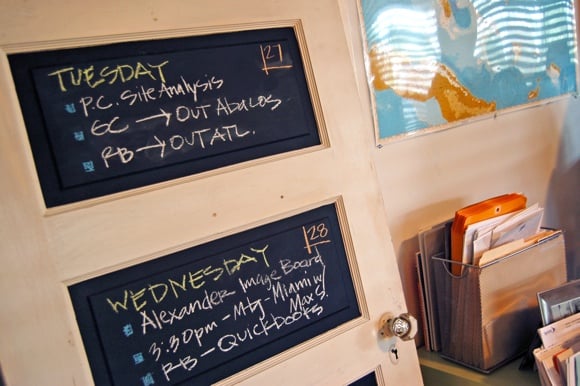 TUESDAY 27
P.C. Site Analysis
GC → OUT Abacos
RB → OUT ATL.
WEDNESDAY 28
Alexander Image Board
3:30pm - Mtg - Miami w/
Max S.
RB - Quickbooks